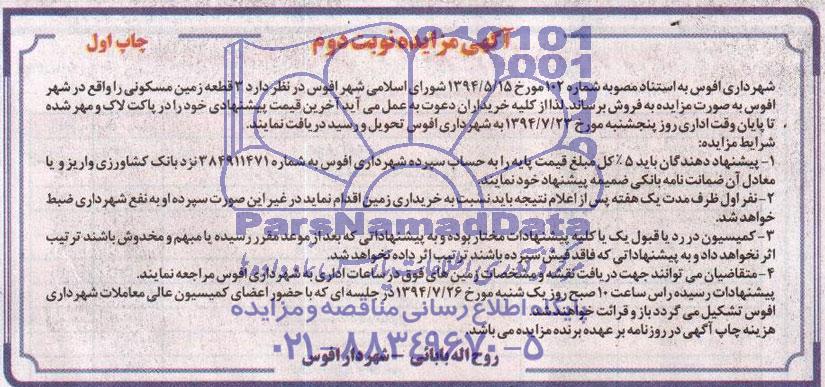 آگهی مزایده نوبت دوم
چاپ اول
شهرداری افوس به استناد مصوبه شماره ۱۰۲ مورخ ۱۳۹۴/۵/۱۵ شورای اسلامی شهر افوس در نظر دارد ۳ قطعه زمین مسکونی را واقع در شهر
افوس به صورت مزایده به فروش برساند. لذا از کلیه خریداران دعوت به عمل می آید آخرین قیمت پیشنهادی خود را در پاکت لاک و مهر شده
تا پایان وقت اداری روز پنجشنبه مورخ ۱۳۹۴/۷/۲۳ به شهرداری افوس تحویل و رسید دریافت نمایند.
شرایط مزایده:
۱- پیشنهاد دهندگان باید ۵٪ کل مبلغ قیمت پایه را به حساب سپرده شهرداری افوس به شماره ۳۸۴۹۱۱۴۷۱ نزد بانک کشاورزی واریز و یا
معادل آن ضمانت نامه بانکی ضمیمه پیشنهاد خود نمایند.
۲- نفر اول ظرف مدت یک هفته پس از اعلام نتیجه باید نسبت به خریداری زمین اقدام نماید در غیر این صورت سپرده او به نفع شهرداری ضبط
خواهد شد.
۳- کمیسیون در رد یا قبول یک یا کلیه پیشنهادات مختار بوده و به پیشنهاداتی که بعد از موعد مقرر رسیده یا مبهم و مخدوش باشند ترتیب
اثر نخواهد داد و به پیشنهاداتی که فاقد فیش سپرده باشند ترتیب اثر داده نخواهد شد.
۴- متقاضیان می توانند جهت دریافت نقشه و مشخصات زمین های فوق در ساعات اداری به شهرداری افوس مراجعه نمایند.
پیشنهادات رسیده راس ساعت ۱۰ صبح روز یک شنبه مورخ ۱۳۹۴/۷/۲۶ در جلسه ای که با حضور اعضای کمیسیون عالی معاملات شهرداری
افوس تشکیل می گردد باز و قرائت خواهند شد.
هزینه چاپ آگهی در روزنامه بر عهده برنده مزایده می باشد.
روح اله بابائی - شهردار افوس
ParsNamadData
پایگاه اطلاع رسانی مناقصه و مزایده
۰۲۱-۸۸۳۴۹۶۷۰-۵